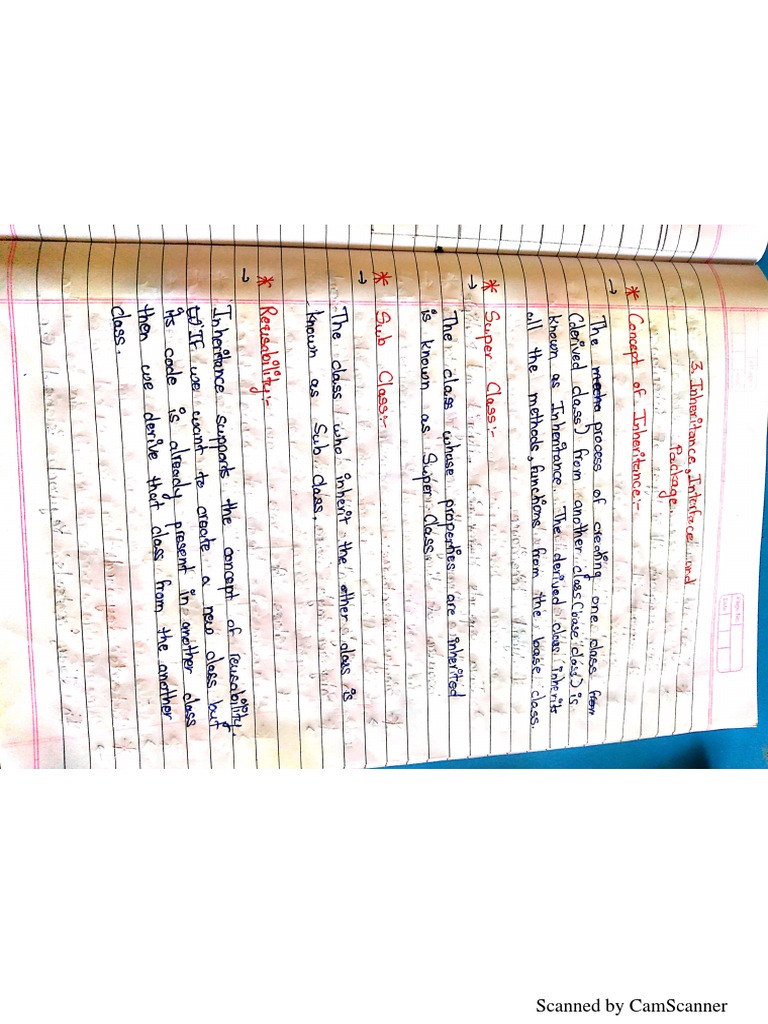 3. Inheritance, Interface and
Package.
* Concept of Inheritance:-
→ The process of creating one class from
(derived class) from another class (base class) is
known as Inheritance. The derived class inherits
all the methods, functions from the base class.
* Super Class:-
→ The class whose properties are inherited
is known as Super Class.
* Sub Class:-
→ The class who inherit the other class is
known as Sub Class.
* Reusability:-
→ Inheritance supports the concept of reusability.
If we want to create a new class but
its code is already present in another class
then we derive that class from the another
class.
Scanned by CamScanner